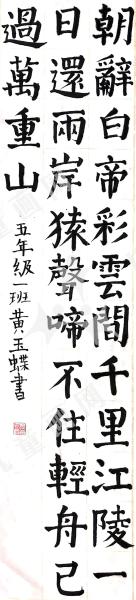 朝辭白帝彩雲間千里江陵一
日還兩岸猿聲啼不住輕舟已
過萬重山
五年級一班黃玉蝶書